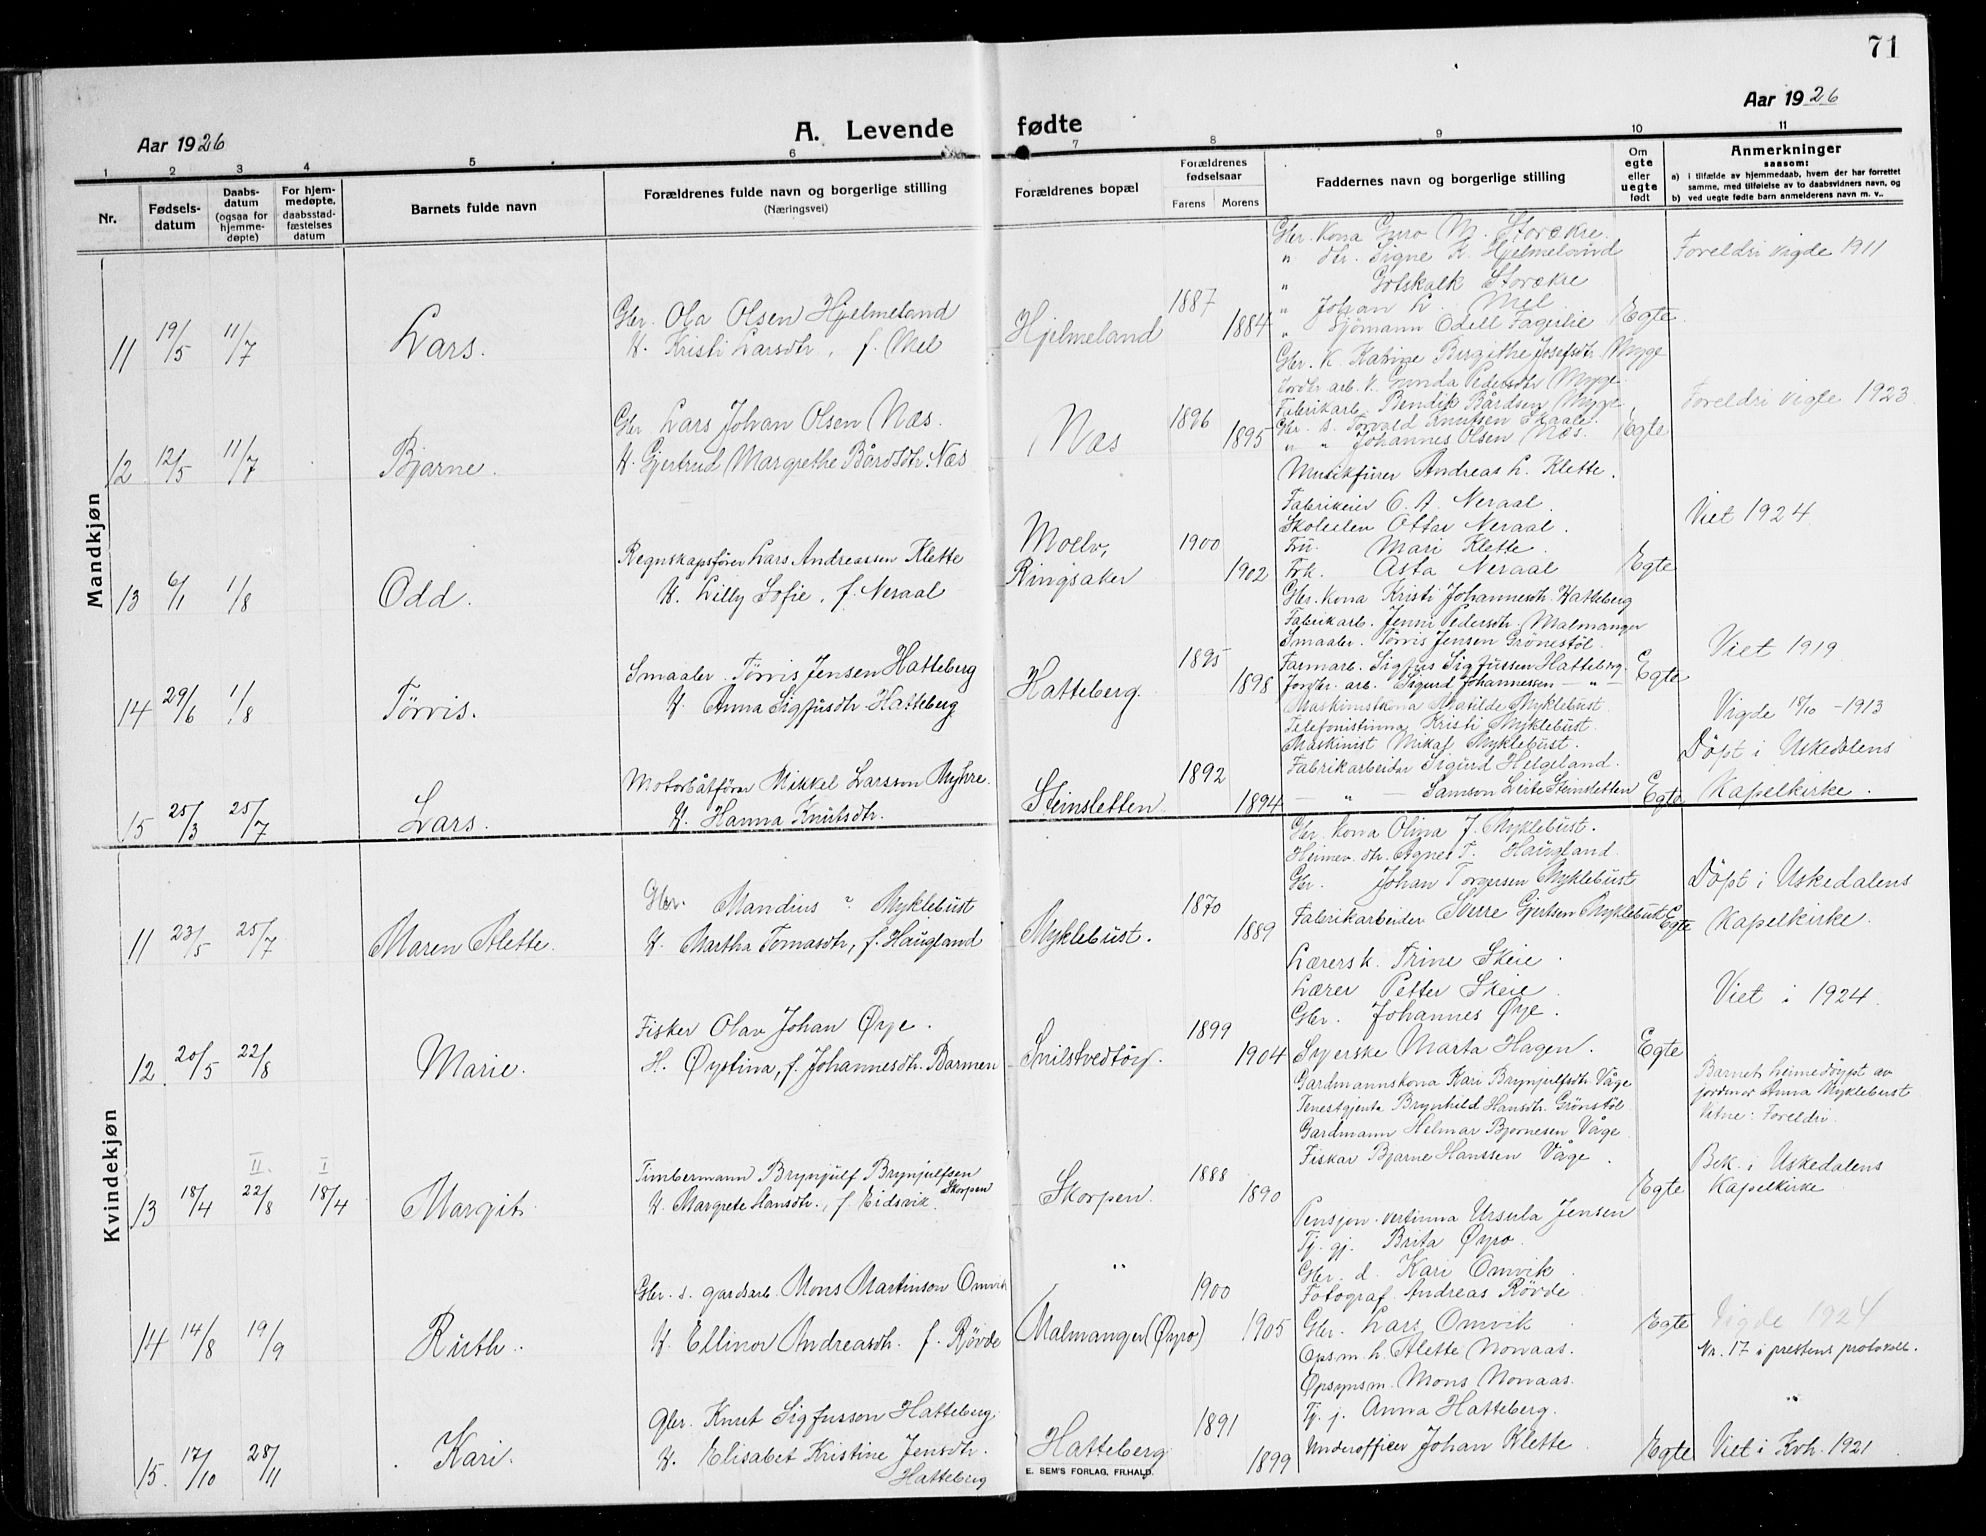 71
Aar 1926
A. Levende fødte
Aar 1926
1 2 3 4 5 6 7 8 9 10 11
Nr.
Fødsels-
datum
Daabs-
datum
(ogsaa for
hjemme-
døpte)
For hjem-
medøpte,
daabsstad-
fæstelses
datum
Barnets fulde navn
Forældrenes fulde navn og borgerlige stilling
(Næringsvei)
Forældrenes bopæl
Forældrenes
fødselsaar
Farens Morens
Faddernes navn og borgerlige stilling
Om
egte
eller
uegte
født
Anmerkninger
saasom:
a) i tilfælde av hjemmedaab, hvem der har forrettet
samme, med tilføielse av to daabsvidners navn, og
b) ved uegte fødte barn anmelderens navn m. v..
Mandkjøn
11 19/5 11/7 Lars.
Gbr. Ola Olsen Hjelmeland
H. Kristi Larsdtr, f. Mel
Hjelmeland 1887 1884
Gbr. Kona Guro M. Storækre.
" dtr. Signe K. Hjelmeland
" Gotskalk Storækre
" Johan L. Mel
" Sjømann Odell Fagerlie
Egte
Foreldri vigde 1911
12 12/5 11/7 Bjarne.
Gbr Lars Johan Olsen Næs.
H. Gjertrud Margrethe Bårdsdtr. Næs
Næs 1896 1895
Gbr. K. Katrine Birgithe Josefsdtr. Myge
Jordbr. arb. K. Gunda Pedersdtr Myge.
Fabrikarb. Bendik Bårdsen Myge
Gbr. s. Torvald Knutsen Skaale.
" " Johannes Olsen Næs.
Egte
Foreldri vigte 1923
13 6/1 1/8 Odd.
Regnskapsfører Lars Andreassen Klette
H. Lilly Sofie, f. Neraal
Moelv,
Ringsaker
1900 1902
Musikfører Andreas L. Klette.
Fabrikeier C. A. Neraal.
Skoleelev Ottar Neraal.
Fru. Mari Klette.
Frk. Asta Neraal
Egte
Viet 1924
14 29/6 1/8 Tørvis.
Smaabr. Tørvis Jensen Hatteberg
H. Anna Sigfusdtr. Hatteberg
Hatteberg. 1895 1898
Gbr. Kona Kristi Johannesdtr. Hatteberg
Fabrikarb. Jenni Pedersdtr. Malmanger
Smaabr. Tørvis Jensen Grönestöl.
Farmarb. Sigfus Sigfussen Hatteberg.
Jordbr. arb. Sigurd Johannessen — " —
Egte
Viet 1919
15 25/3 25/7 Lars.
Motorbåtförer Mikkel Larsson Myhre.
H. Hanna Knutsdtr.
Steinsletten. 1892 1894
Maskinistkona Matilde Myklebust.
Telefonistinna Kristi Myklebust.
Maskinist Mikal Myklebust.
Fabrikarbeider Sigurd Helgeland.
— " — Samson Leite Steinsletten
Egte
Vigde 18/10 - 1913
Döpt i Uskedalens
Kapelkirke.
Kvindekjøn
11 23/5 25/7 Maren Alette.
Gbr. Mandius ? Myklebust
H. Martha Tomasdtr, f. Haugland
Myklebust. 1870 1889
Gbr. Kona Olina J. Myklebust.
Heimev. dtr. Agnes T. Haugland.
Gbr. Johan Torgersen Myklebust
Fabrikarbeider Sverre Gjertsen Myklebust
Egte
Döpt i Uskedalens
Kapelkirke.
12 20/5 22/8 Marie.
Fisker Olav Johan Øye.
H. Øystina, f. Johannesdtr. Barmen
Snilstvedtöy. 1899 1904
Lærersk. Trine Skeie.
Lærer Petter Skeie.
Gbr. Johannes Øye.
Syerske Marta Hagen.
Egte
Viet i 1924
13 18/4 II. 22/8 I 18/4 Margit.
Timbermann Brynjulf Brynjulfsen
Skorpen
H. Margrete Hansdtr., f. Eidsvik
Skorpen. 1888 1890
Gardmannskona Kari Brynjulfsdtr Våge
Tenestgjenta Brynhild Hansdtr. Grönstöl
Gardmann Helmar Bjørnesen Våge
Fiskar Bjarne Hanssen Våge.
Egte
Barnet heimedöypt av
jordmor Anna Myklebust
Vitne: Foreldri.
Bek. i Uskedalens
Kapelkirke
14 14/8 19/9 Ruth.
Gbr. s. gardsarb. Mons Martinson Omvik
H. Ellinor Andreasdtr. f. Rövde
"
Malmanger (Øyro) 1900 1905
Pensjon. vertinna Ursula Jensen
Tj. gj. Brita Øyro.
Gbr. d. Kari Omvik.
Fotograf Andreas Rövde
Gbr. Lars Omvik
Egte
Vigde 1924
Nr. 17 i prestens protokoll.
15 17/10 28/11 Kari.
Gbr. Knut Sigfusson Hatteberg
H. Elisabet Kristine Jensdtr.
Hatteberg
Hatteberg 1891 1899
Ops.m. h. Alette Nonaas.
Opsynsm. Mons Nonaas.
Tj. j. Anna Hatteberg.
Underofficer Johan Klette.
Egte
"
Viet i Kvh. 1921
E. SEM'S FORLAG, FR.HALD.